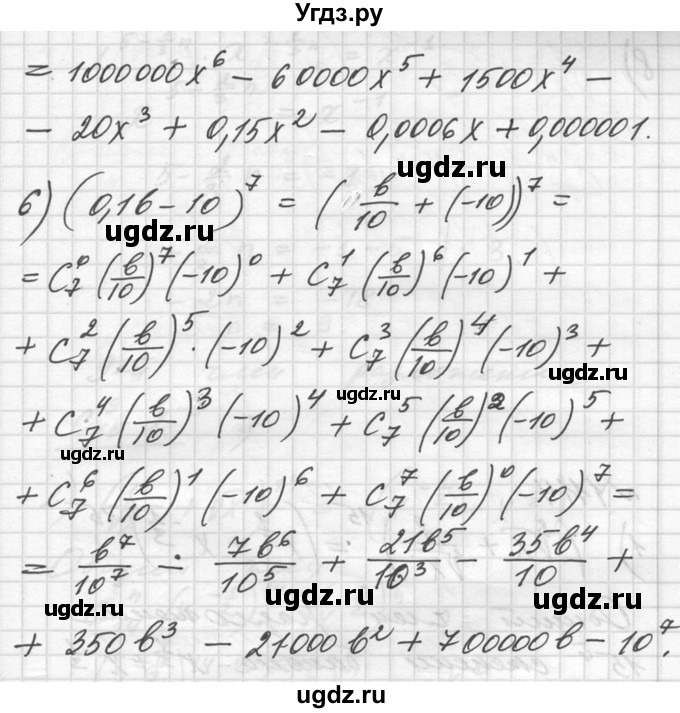 Угдз.ру
= 1000000x⁶ − 60000x⁵ + 1500x⁴ −
− 20x³ + 0,15x² − 0,0006x + 0,000001.
ugdz.ru
6) (0,1в − 10)⁷ = (в/10 + (−10))⁷ =
ugdz.ru
= C₇⁰ (в/10)⁷ (−10)⁰ + C₇¹ (в/10)⁶ (−10)¹ +
+ C₇² (в/10)⁵ · (−10)² + C₇³ (в/10)⁴ (−10)³ +
ugdz.ru
+ C₇⁴ (в/10)³ (−10)⁴ + C₇⁵ (в/10)² (−10)⁵ +
ugdz.ru
+ C₇⁶ (в/10)¹ (−10)⁶ + C₇⁷ (в/10)⁰ (−10)⁷ =
= в⁷/10⁷ − 7в⁶/10⁵ + 21в⁵/10³ − 35в⁴/10 +
ugdz.ru ugdz.ru ugdz.ru
+ 350в³ − 21000в² + 700000в − 10⁷.
ugdz.ru